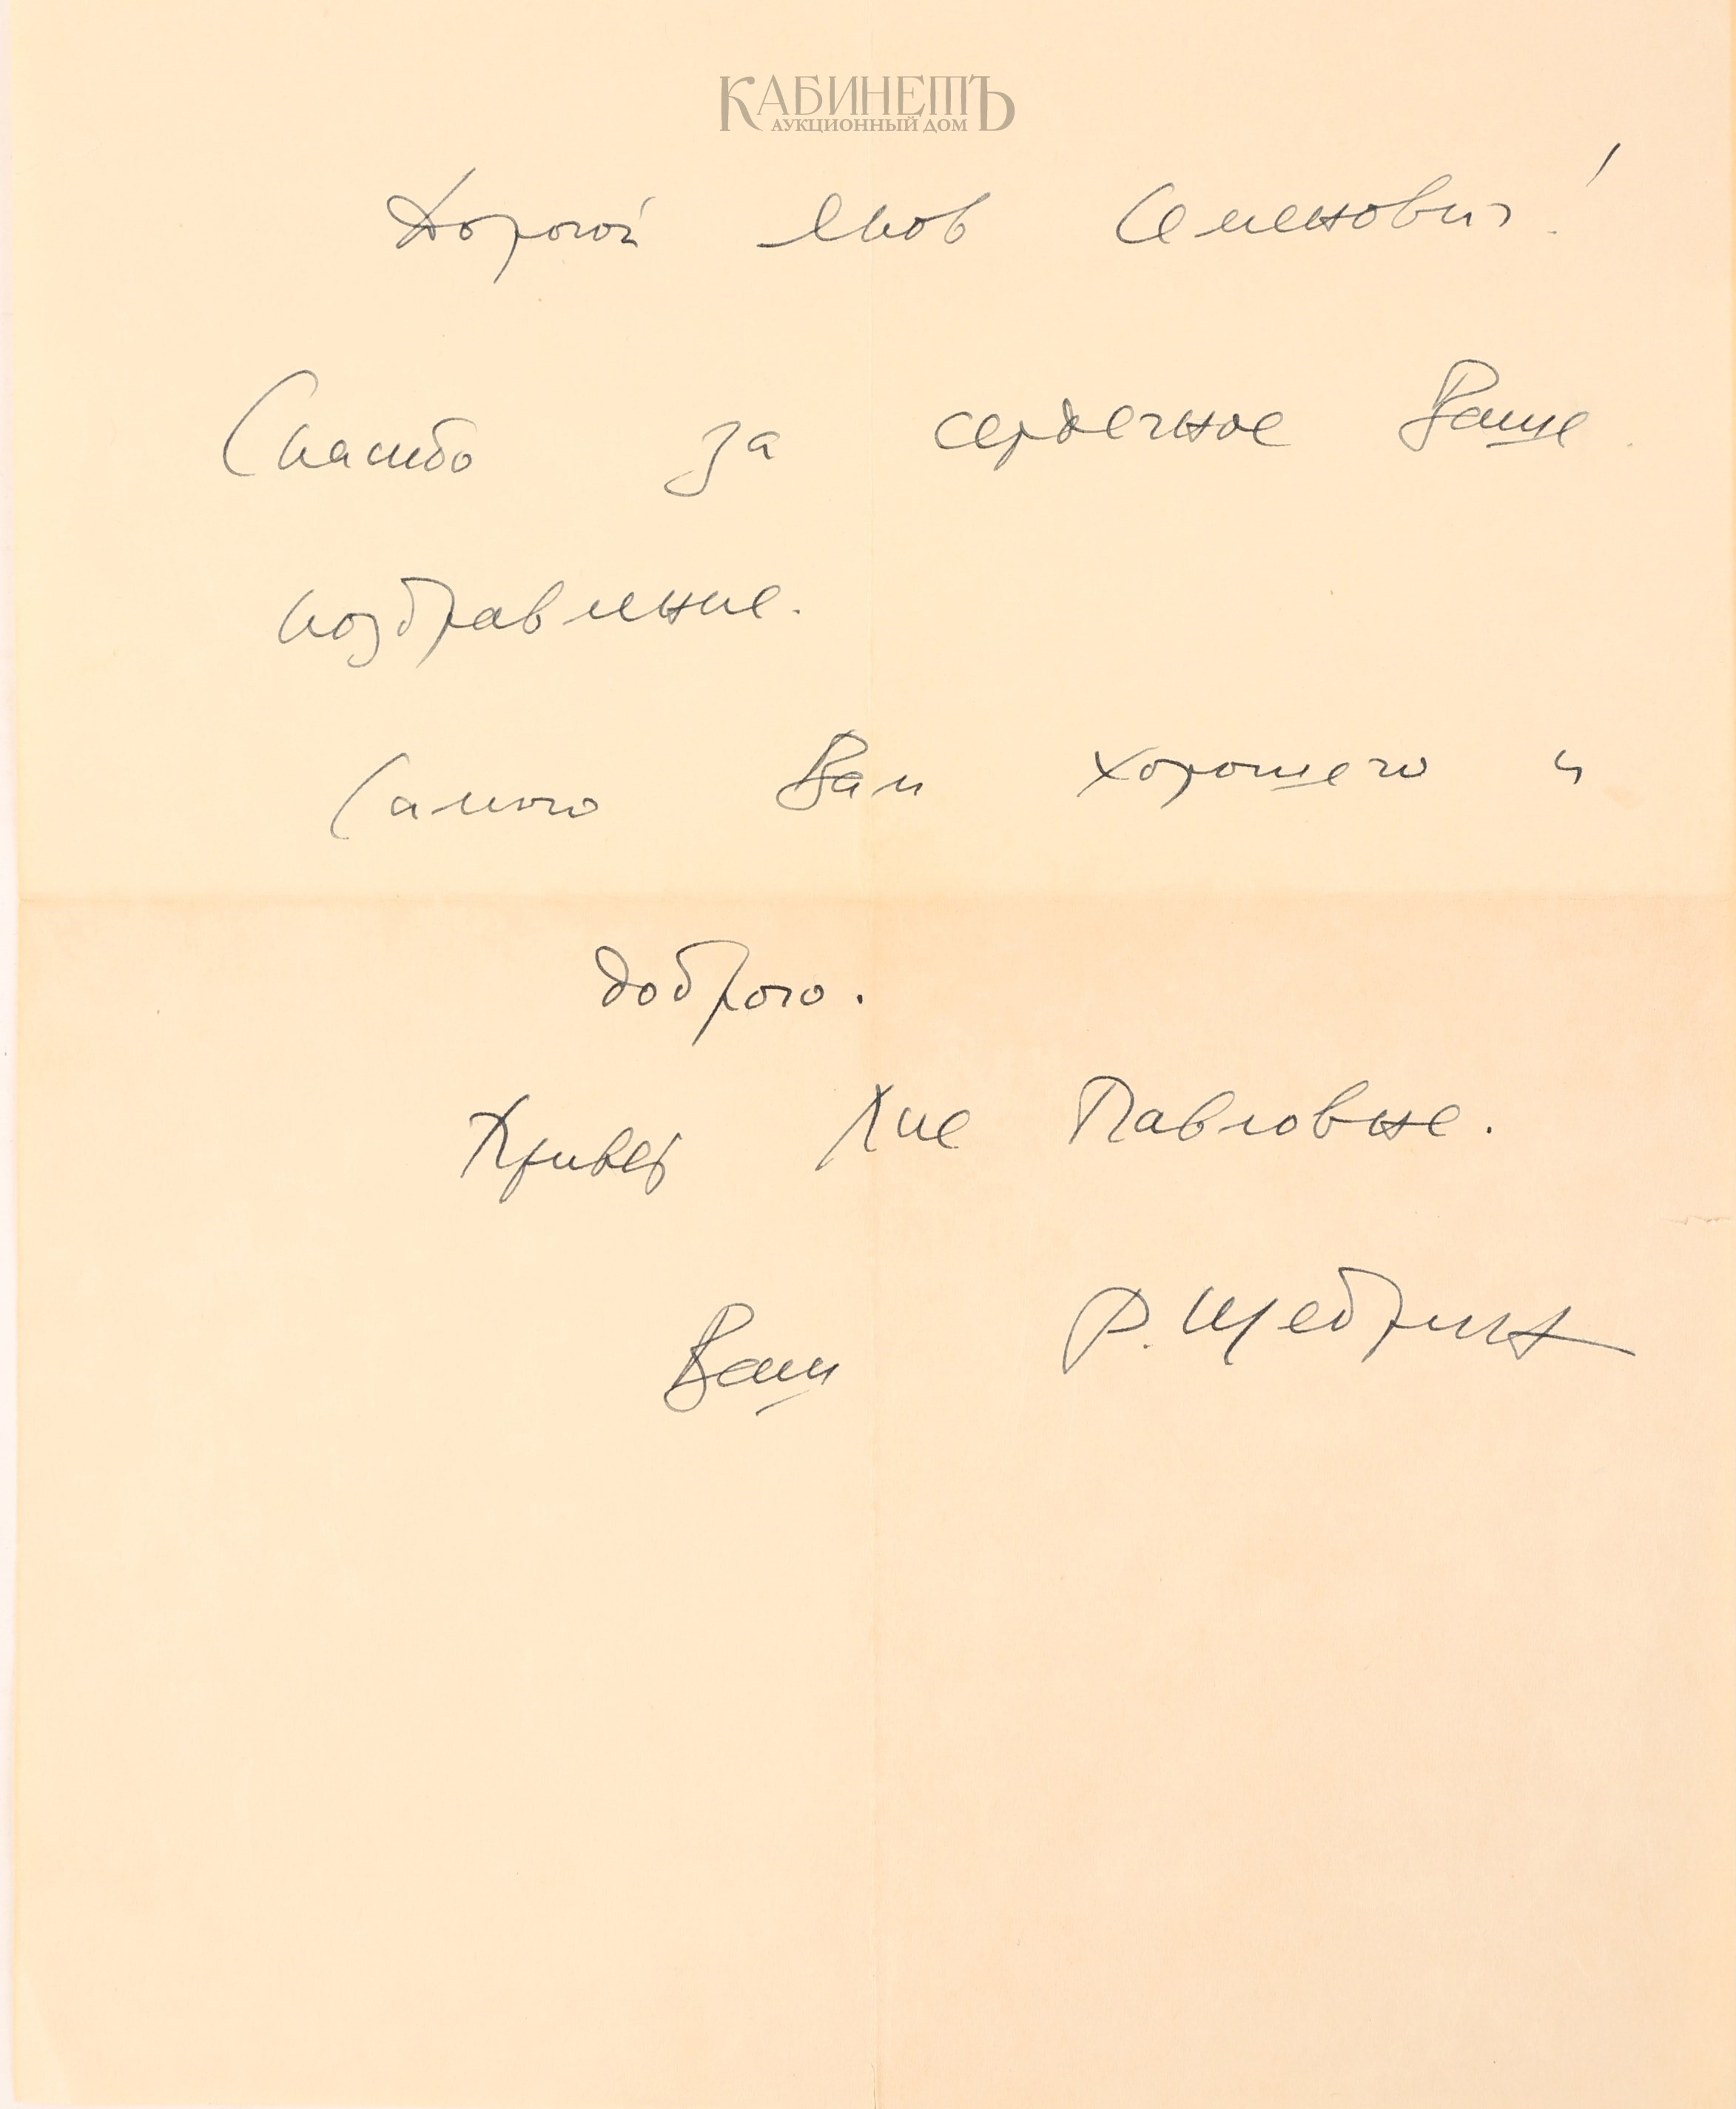 КАБИНЕТЪ
АУКЦИОННЫЙ ДОМ
Дорогой Яков Семенович!
Спасибо за сердечное Ваше
поздравление.
Самого Вам хорошего и
доброго.
Привет Лие Павловне.
Ваш Р. Щедрин